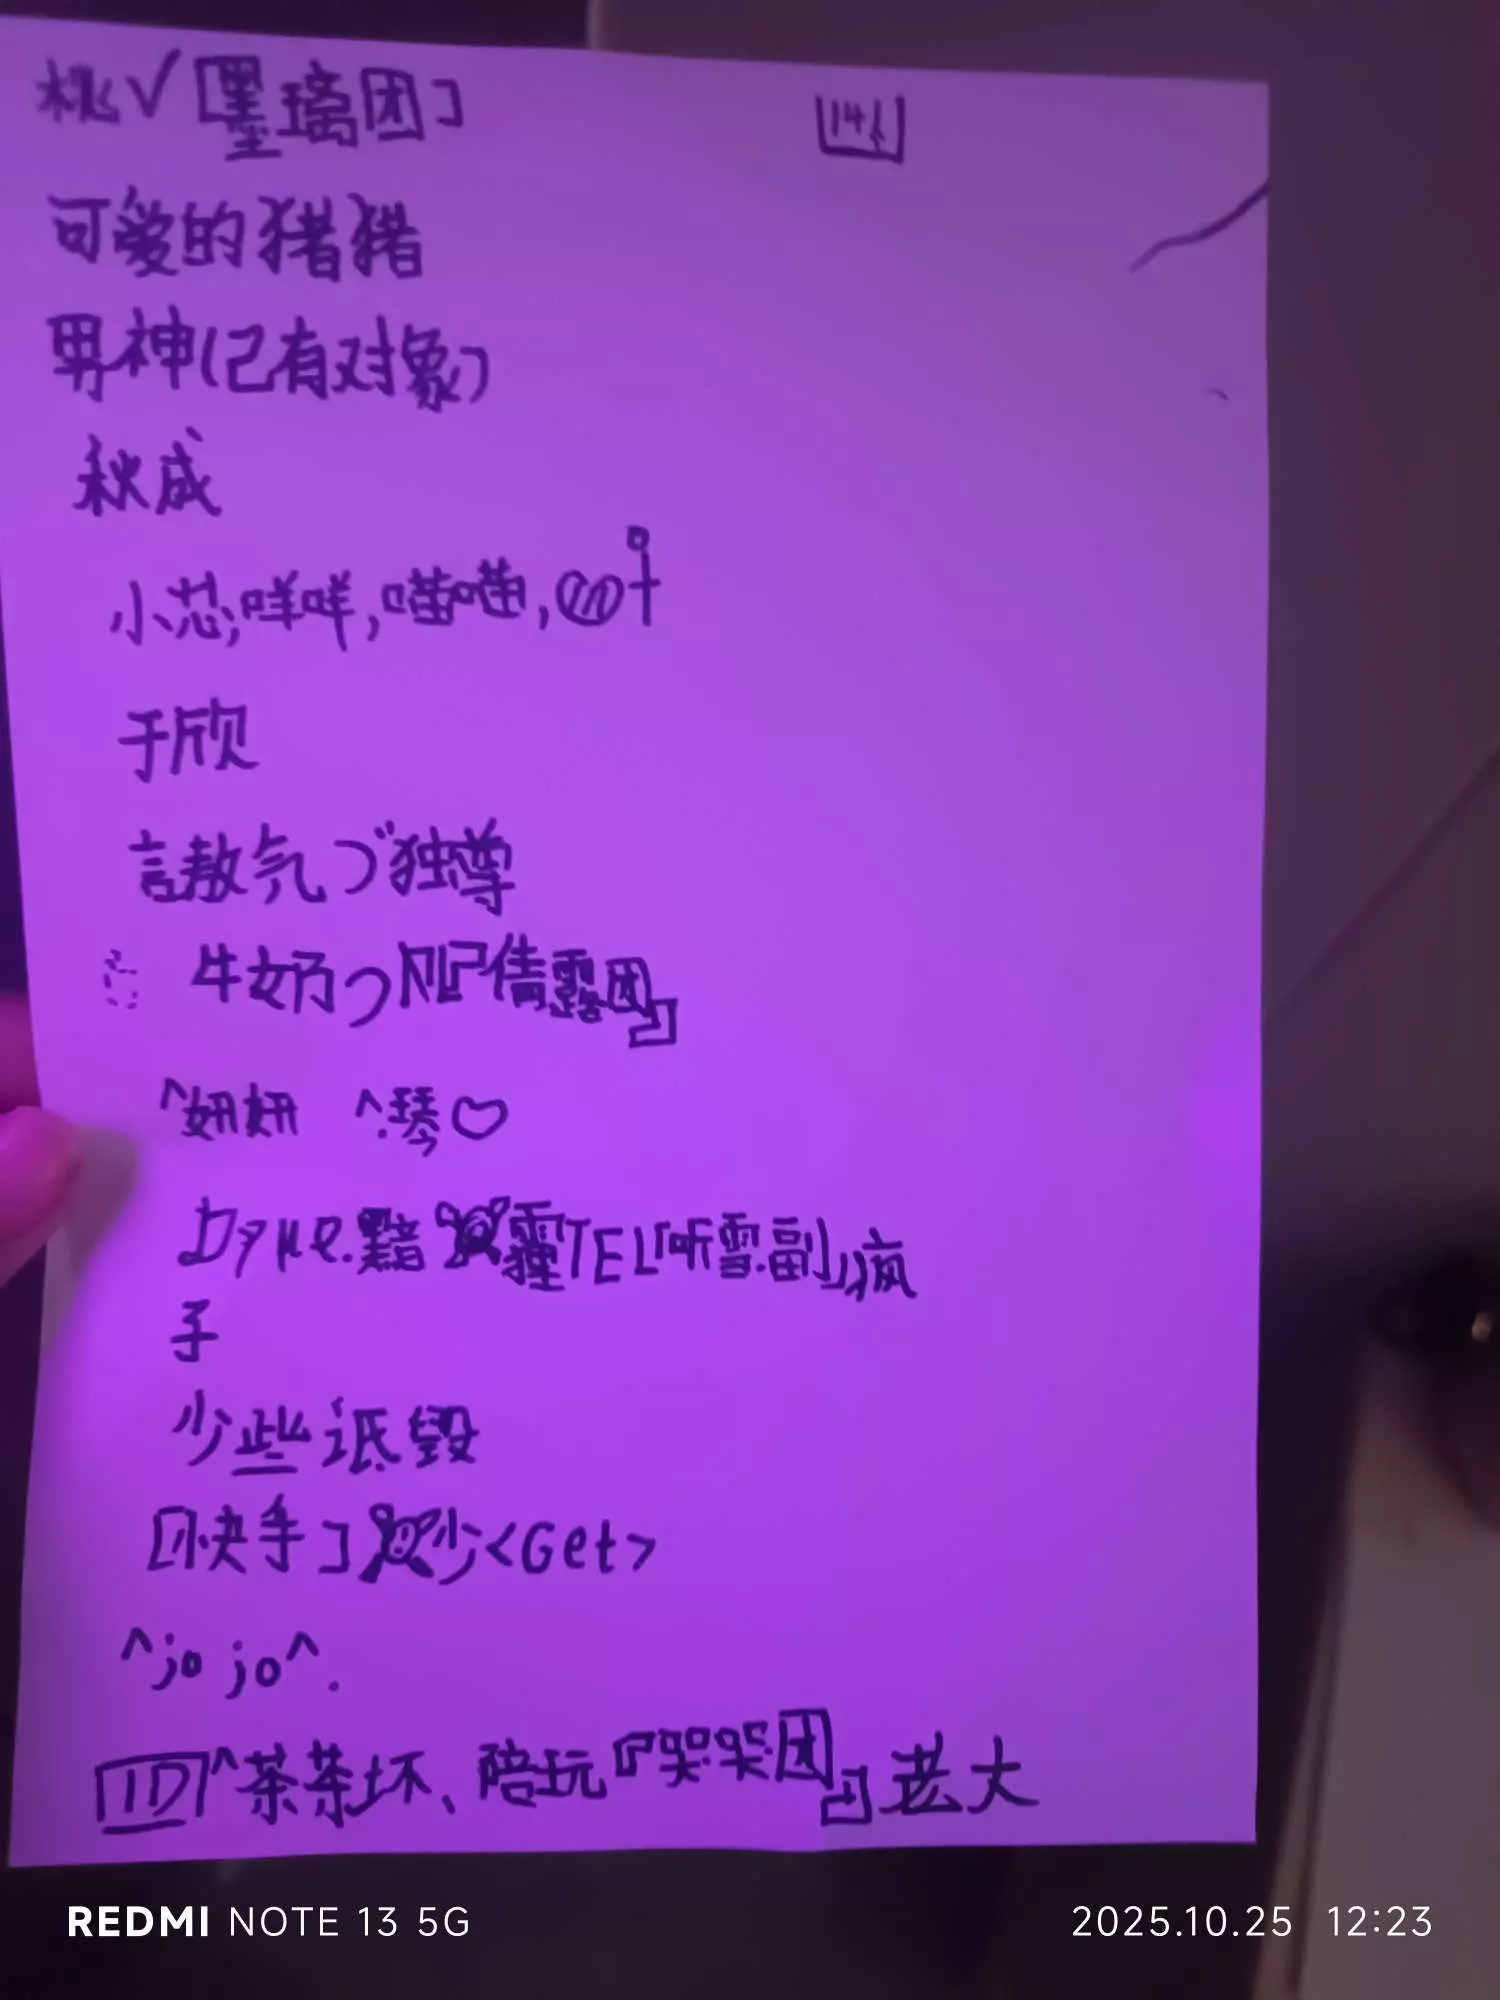 桃√[墨璃团]
14人
可爱的猪猪
男神(己有对象)
秋成
小芯,咩咩,喵喵,
于欣
言敖气づ独尊
牛奶つ 倩露团』
^妞妞 ^.琴♡
黯 霾TEL『听雪.副』疯
子
少些诋毁
[快手] 少<Get>
^jo jo^.
ID^茶茶坏、陪玩『哭哭团』老大
REDMI NOTE 13 5G
2025.10.25 12:23